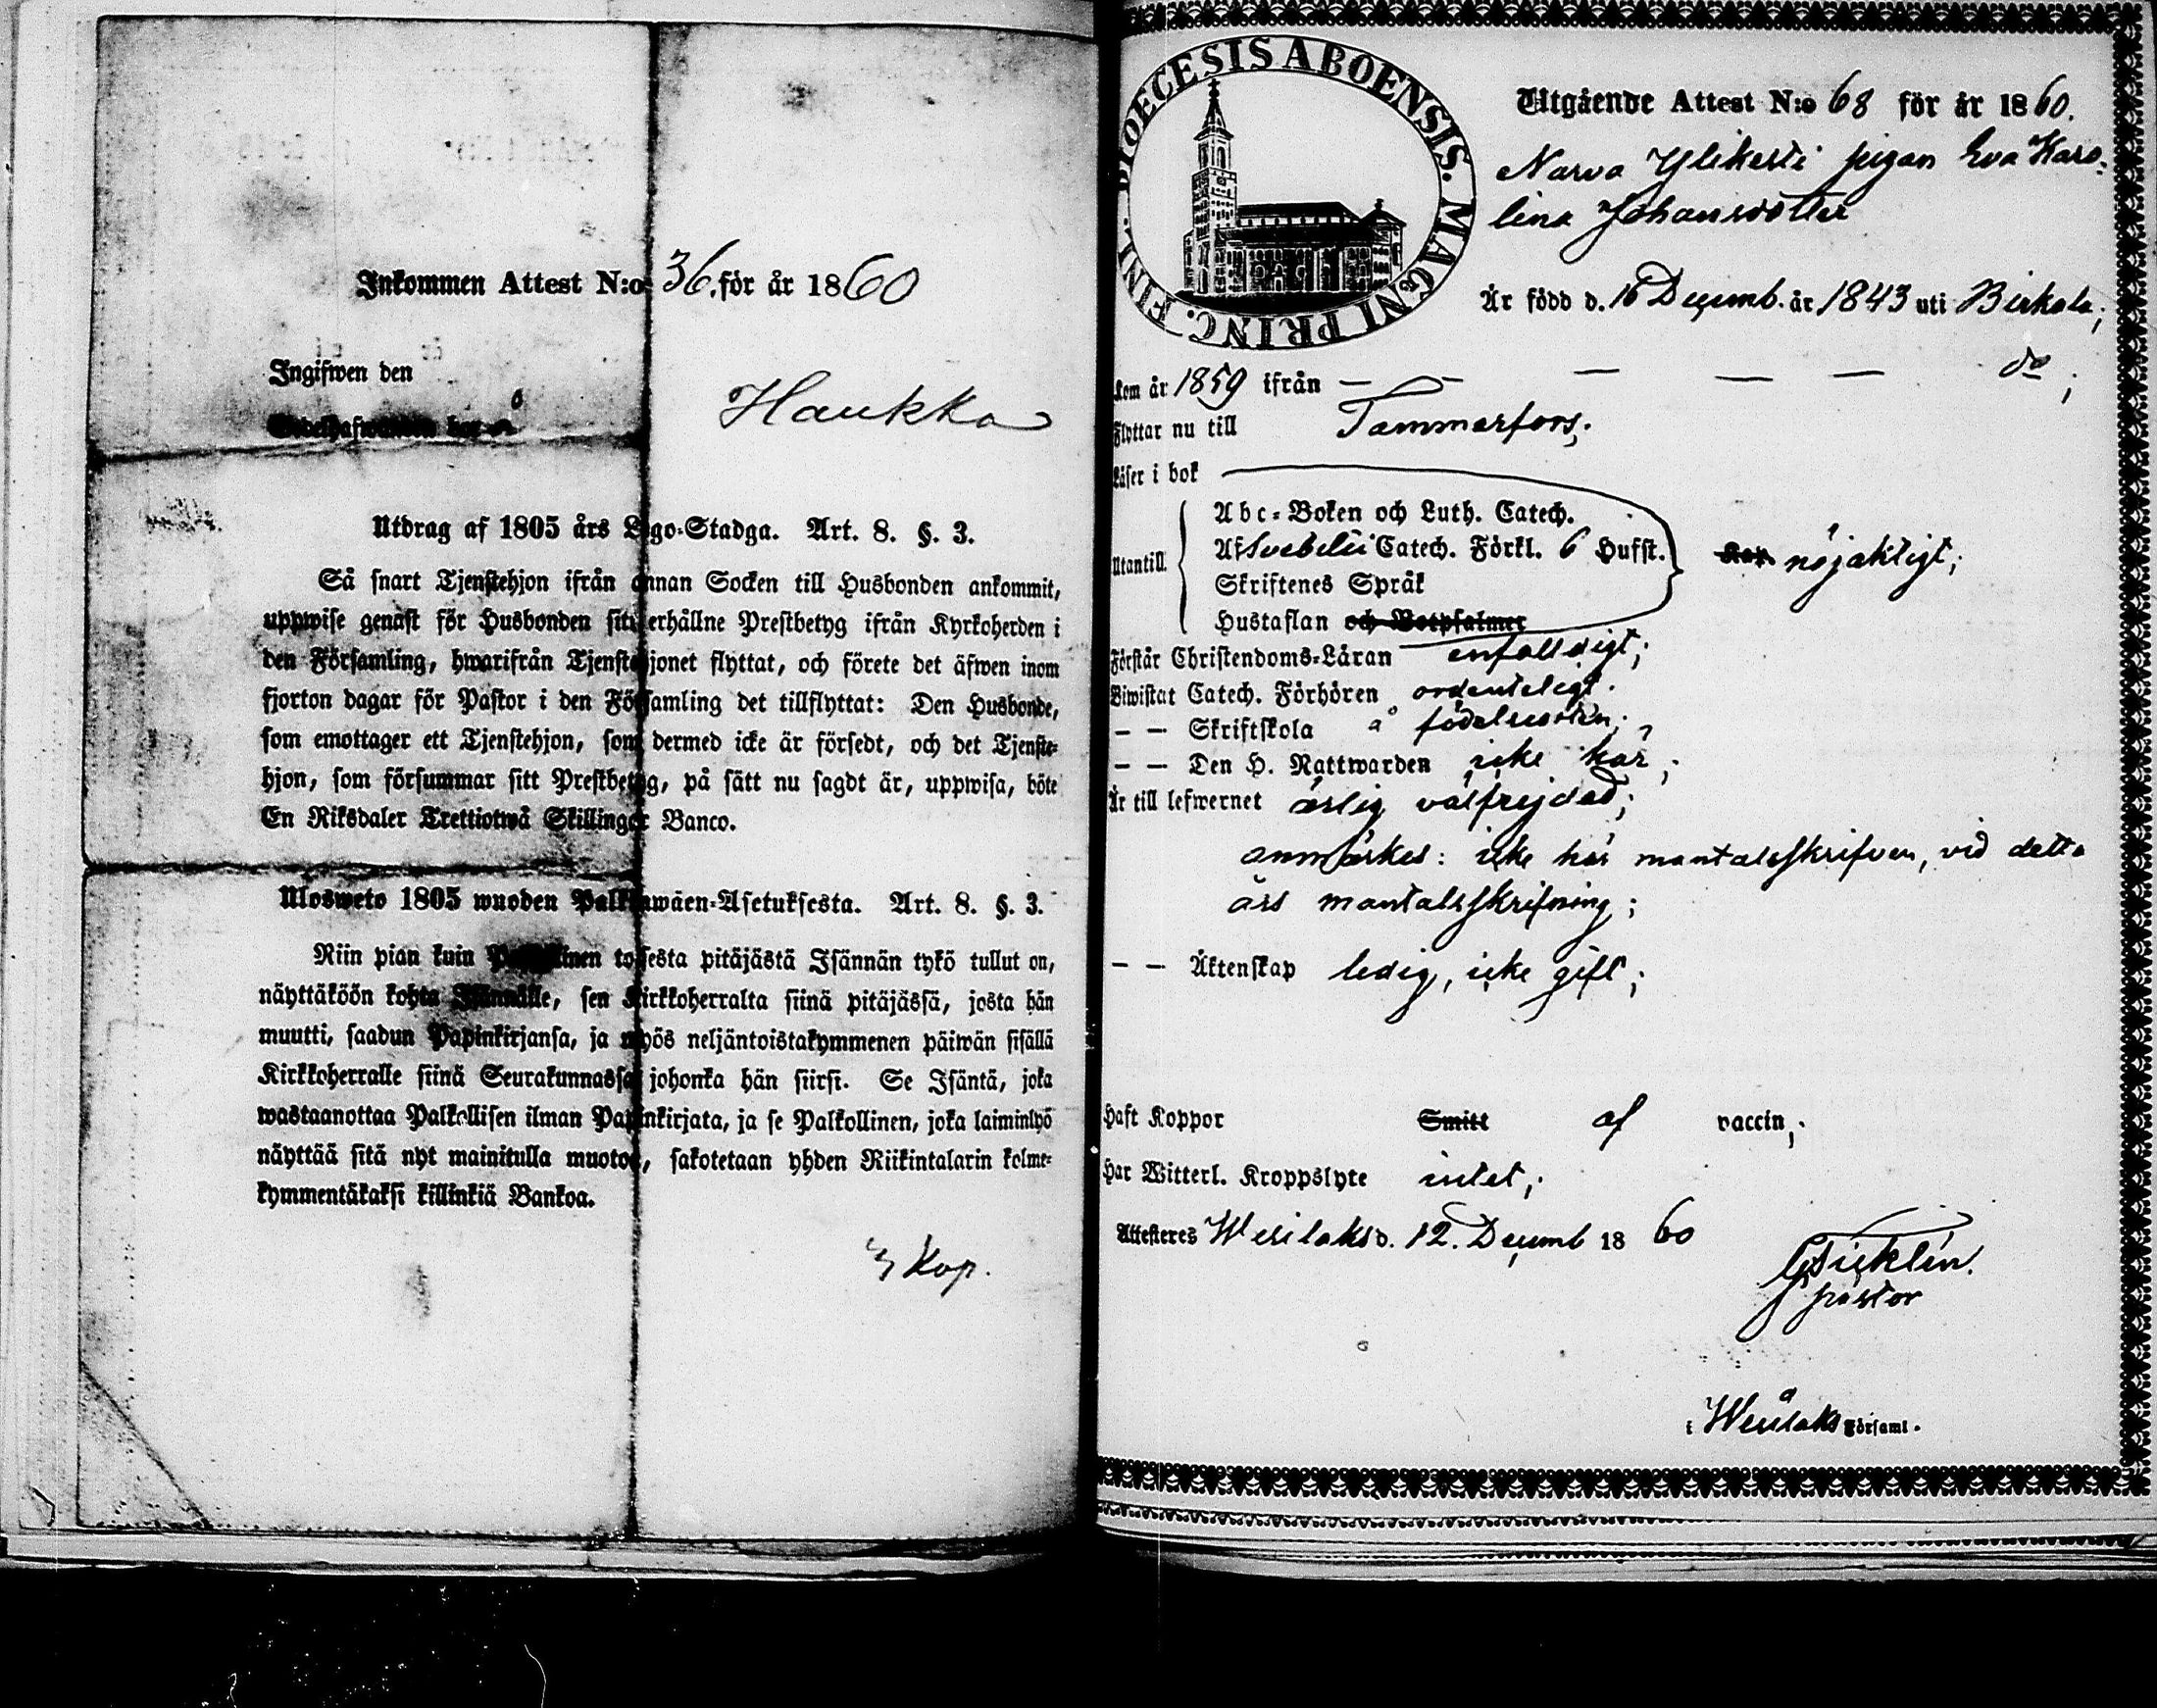 Inkommen Attest N:o 36. för år 1860
Ingifwen den
Haukka
Utdrag af 1805 års Lego-Stadga. Art. 8. §. 3.
Så snart Tjenstehjon ifrån annan Socken till Husbonden ankommit,
uppwise genast för Husbonden sitt erhållne Prestbetyg ifrån Kyrkoherden i
den Församling, hwarifrån Tjenstehjonet flyttat, och förete det äfwen inom
fjorton dagar för Pastor i den Församling det tillflyttat: Den Husbonde,
som emottager ett Tjenstehjon, som dermed icke är försedt, och det Tjenste-
hjon, som försummar sitt Prestbetyg, på sätt nu sagdt är, uppwisa, böte
En Riksdaler Trettiotwå Skillingar Banco.
Ulosweto 1805 wuoden Palkkawäen-Asetuksesta. Art. 8. §. 3.
Niin pian kuin Palkollinen toisesta pitäjästä Isännän tykö tullut on,
näyttäköön kohta Isännälle, sen Kirkkoherralta siinä pitäjässä, josta hän
muutti, saadun Papinkirjansa, ja myös neljäntoistakymmenen päiwän sisällä
Kirkkoherralle siinä Seurakunnassa johonka hän siirsi. Se Isäntä, joka
wastaanottaa Palkollisen ilman Papinkirjata, ja se Palkollinen, joka laiminlyö
näyttää sitä nyt mainitulla muotoa, sakotetaan yhden Riikintalarin kolme-
kymmentäkaksi killinkiä Bankoa.
3 Kop.
DIOECESIS ABOENSIS. MAGNI PRINC. FINL.
Utgående Attest N:o 68 för år 1860.
Narva Ylikesti pigan Eva Karo-
lina Johansdotter
Är född d. 16 Decemb. år 1843 uti Birkala;
Kom år 1859 ifrån — — — — — do;
Flyttar nu till Tammerfors;
Läser i bok
Utantill
Abc-Boken och Luth. Catech.
Af Svebelii Catech. Förkl. 6 Hufst. nöjaktigt;
Skriftenes Språk
Hustaflan och Botpsalmer
Förstår Christendoms-Läran enfaldigt;
Biwistat Catech. Förhören ordenteligt.
— — Skriftskola å födelseorten;
— — Den H. Nattwarden icke här;
Är till lefwernet ärlig välfrejdad;
anmärkes: icke här mantalsskrifven, vid detta
års mantalsskrifning;
— — Äktenskap ledig, icke gift;
Haft Koppor Smitt af vaccin;
Har Witterl. Kroppslyte intet;
Attesteres Wesilaks d. 12. Decemb 1860
Pastor
i Wesilaks Församl.